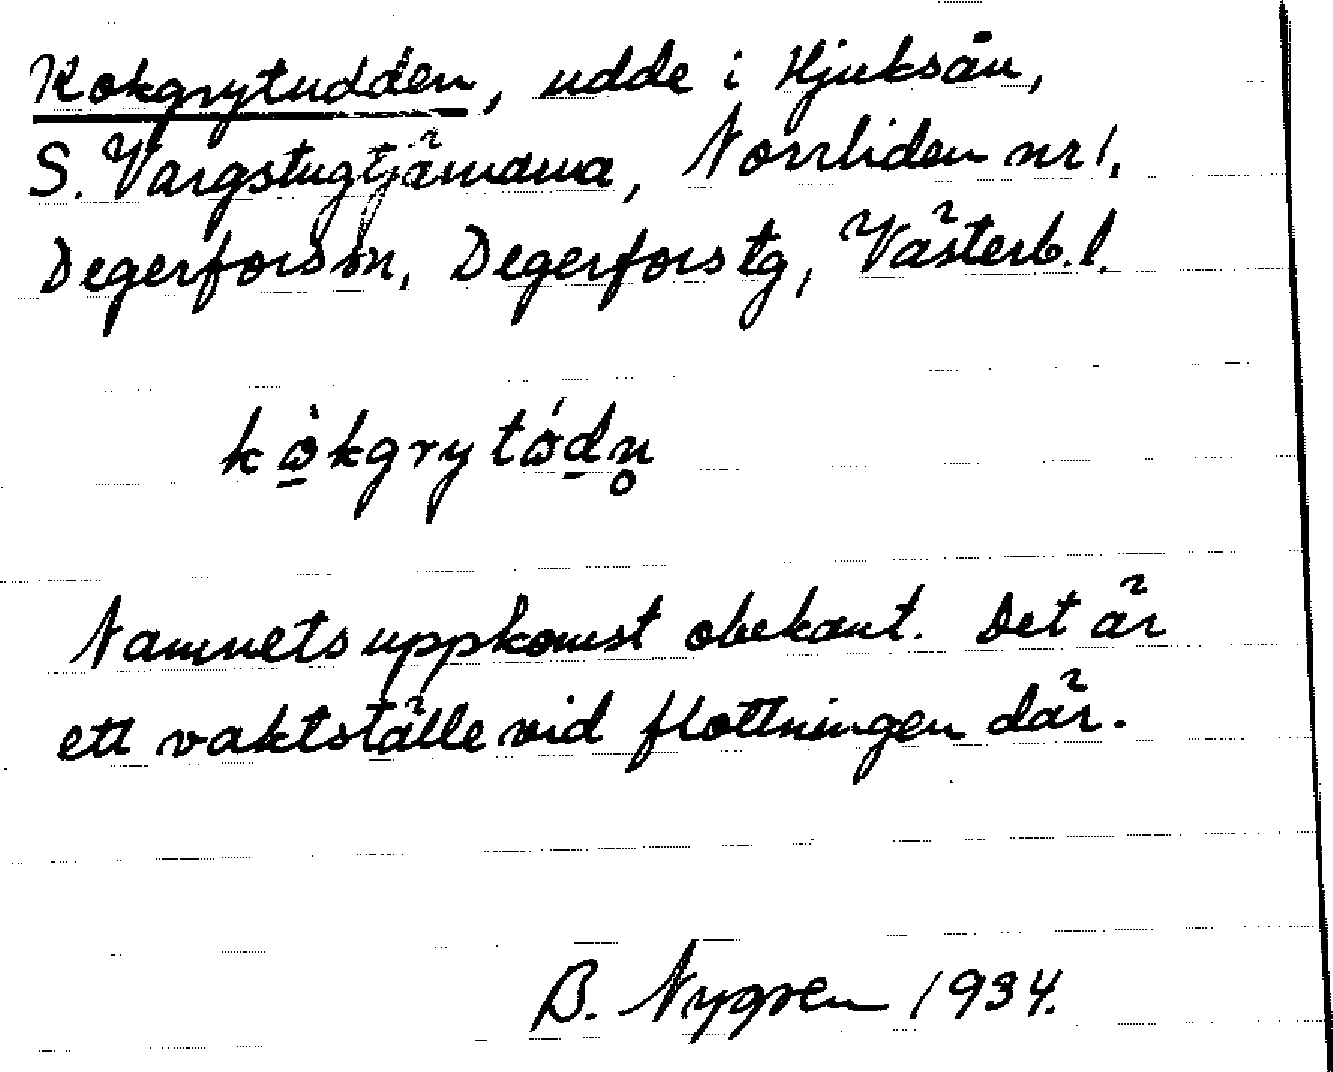 Kokgrytudden, udde i Hjuksån,
S. Vargstugtjärnarna, Norrliden nr 1,
Degerfors sn, Degerfors tg, Västerb. l.
kò̱kgrytóḏn̥
Namnets uppkomst obekant. Det är
ett vaktställe vid flottningen där.
B. Nygren 1934.